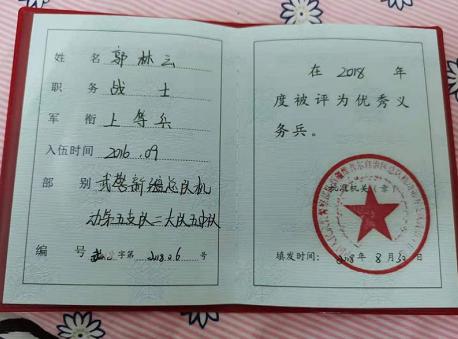 姓 名 郭林云
职 务 战士
军 衔 上等兵
入伍时间 2016.09
部 别 武警新疆总队机
动第五支队二大队五中队
编 号 字第 号
在 2018 年
度被评为优秀义
务兵。
批准机关(章)
填发时间: 2018 年 8 月 30 日